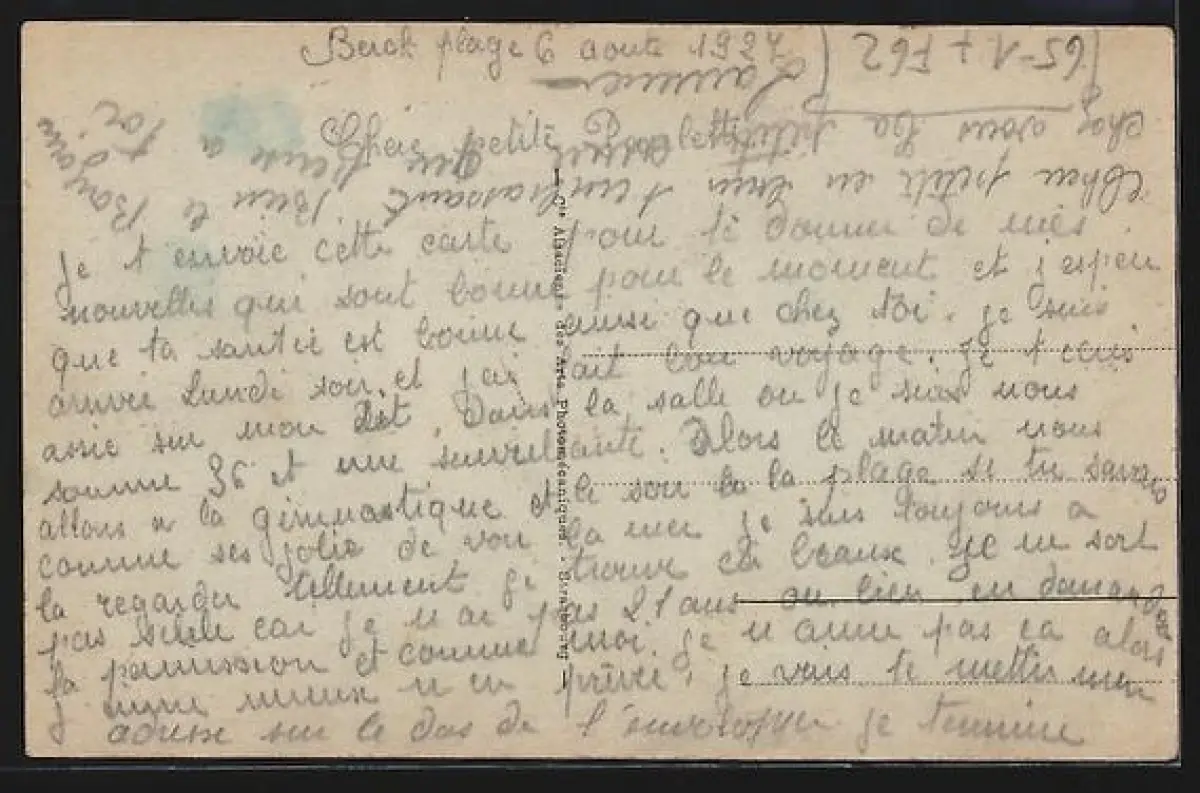 Berck plage 6 aoute 1937
65-1 + F62
Chère petite Paulette
Je t envoie cette carte pour te donner de mes
nouvelles qui sont bonne pour le moment et j espere
que ta santée est bonne ainsi que chez toi. je suis
arrivée Lundi soir et j ai fait bon voyage. Je t ecris
assie sur mon lit. Dans la salle ou je suis nous
somme 36 et une surveillante. Alors le matin nous
allons a la gimnastique et le soir la la plage si tu savais
comme ses jolie de voir la mer je suis toujours a
la regarder tellement je trouve ca beaux. Je ne sort
pas seule car je n ai pas 21 ans ou bien en demandant
la permission et comme moi je n aime pas ca alors
j aime mieux m en privée. je vais te mettre mon
adresse sur le dos de l'enveloppe je termine
chère petite en t embrassant bien
Bien le Bonjour
chez vous ta petite
a toi